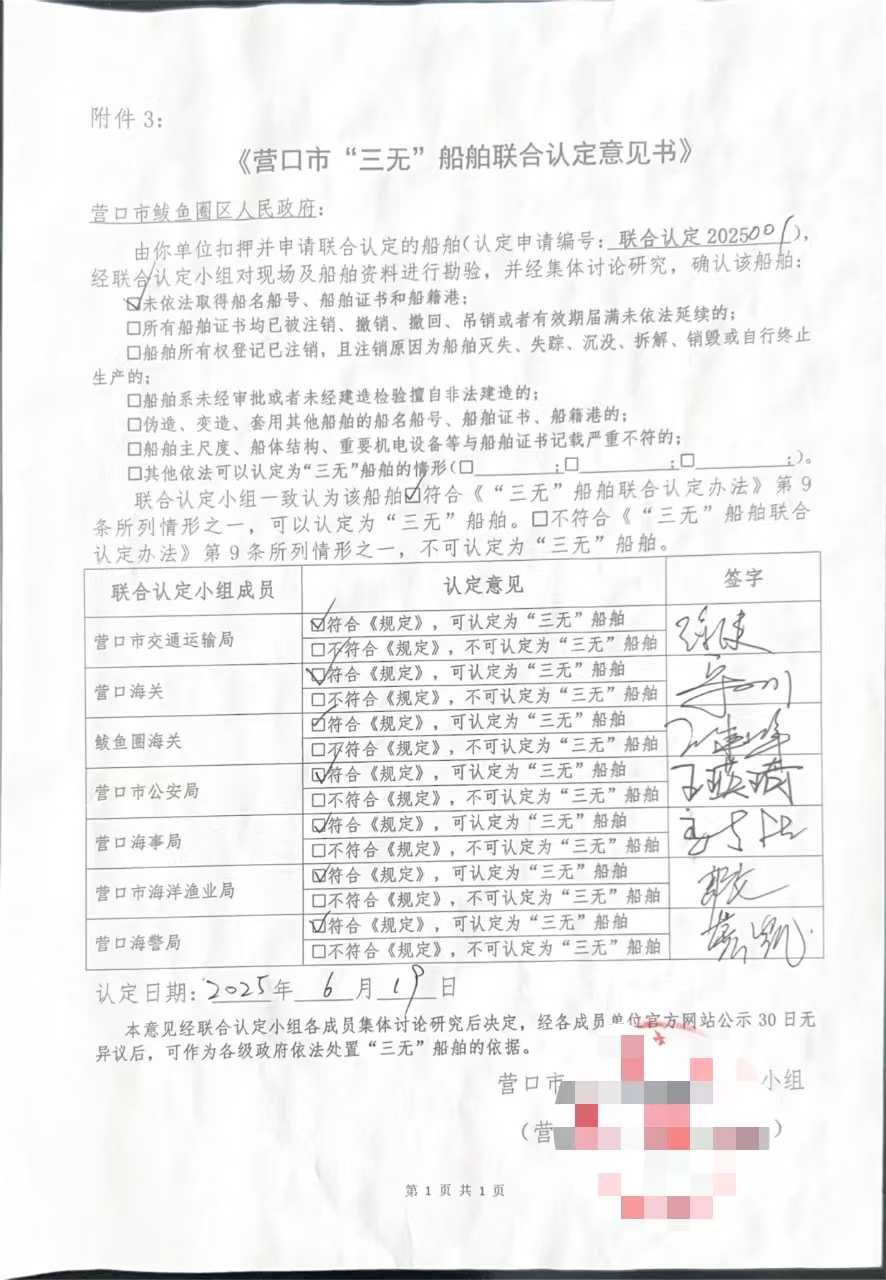 附件 3：
《营口市“三无”船舶联合认定意见书》
营口市鲅鱼圈区人民政府：
由你单位扣押并申请联合认定的船舶（认定申请编号：联合认定 2025001），
经联合认定小组对现场及船舶资料进行勘验，并经集体讨论研究，确认该船舶：
☑未依法取得船名船号、船舶证书和船籍港；
□所有船舶证书均已被注销、撤销、撤回、吊销或者有效期届满未依法延续的；
□船舶所有权登记已注销，且注销原因为船舶灭失、失踪、沉没、拆解、销毁或自行终止
生产的；
□船舶系未经审批或者未经建造检验擅自非法建造的；
□伪造、变造、套用其他船舶的船名船号、船舶证书、船籍港的；
□船舶主尺度、船体结构、重要机电设备等与船舶证书记载严重不符的；
□其他依法可以认定为“三无”船舶的情形（□________；□________；□________；）。
联合认定小组一致认为该船舶☑符合《“三无”船舶联合认定办法》第 9
条所列情形之一，可以认定为“三无”船舶。□不符合《“三无”船舶联合
认定办法》第 9 条所列情形之一，不可认定为“三无”船舶。
联合认定小组成员 认定意见 签字
营口市交通运输局 ☑符合《规定》，可认定为“三无”船舶
□不符合《规定》，不可认定为“三无”船舶
营口海关 ☑符合《规定》，可认定为“三无”船舶
□不符合《规定》，不可认定为“三无”船舶
鲅鱼圈海关 ☑符合《规定》，可认定为“三无”船舶
□不符合《规定》，不可认定为“三无”船舶
营口市公安局 ☑符合《规定》，可认定为“三无”船舶
□不符合《规定》，不可认定为“三无”船舶
营口海事局 ☑符合《规定》，可认定为“三无”船舶
□不符合《规定》，不可认定为“三无”船舶
营口市海洋渔业局 ☑符合《规定》，可认定为“三无”船舶
□不符合《规定》，不可认定为“三无”船舶
营口海警局 ☑符合《规定》，可认定为“三无”船舶
□不符合《规定》，不可认定为“三无”船舶
认定日期：2025年 6 月 19 日
本意见经联合认定小组各成员集体讨论研究后决定，经各成员单位官方网站公示 30 日无
异议后，可作为各级政府依法处置“三无”船舶的依据。
营口市 小组
（营 ）
第 1 页 共 1 页